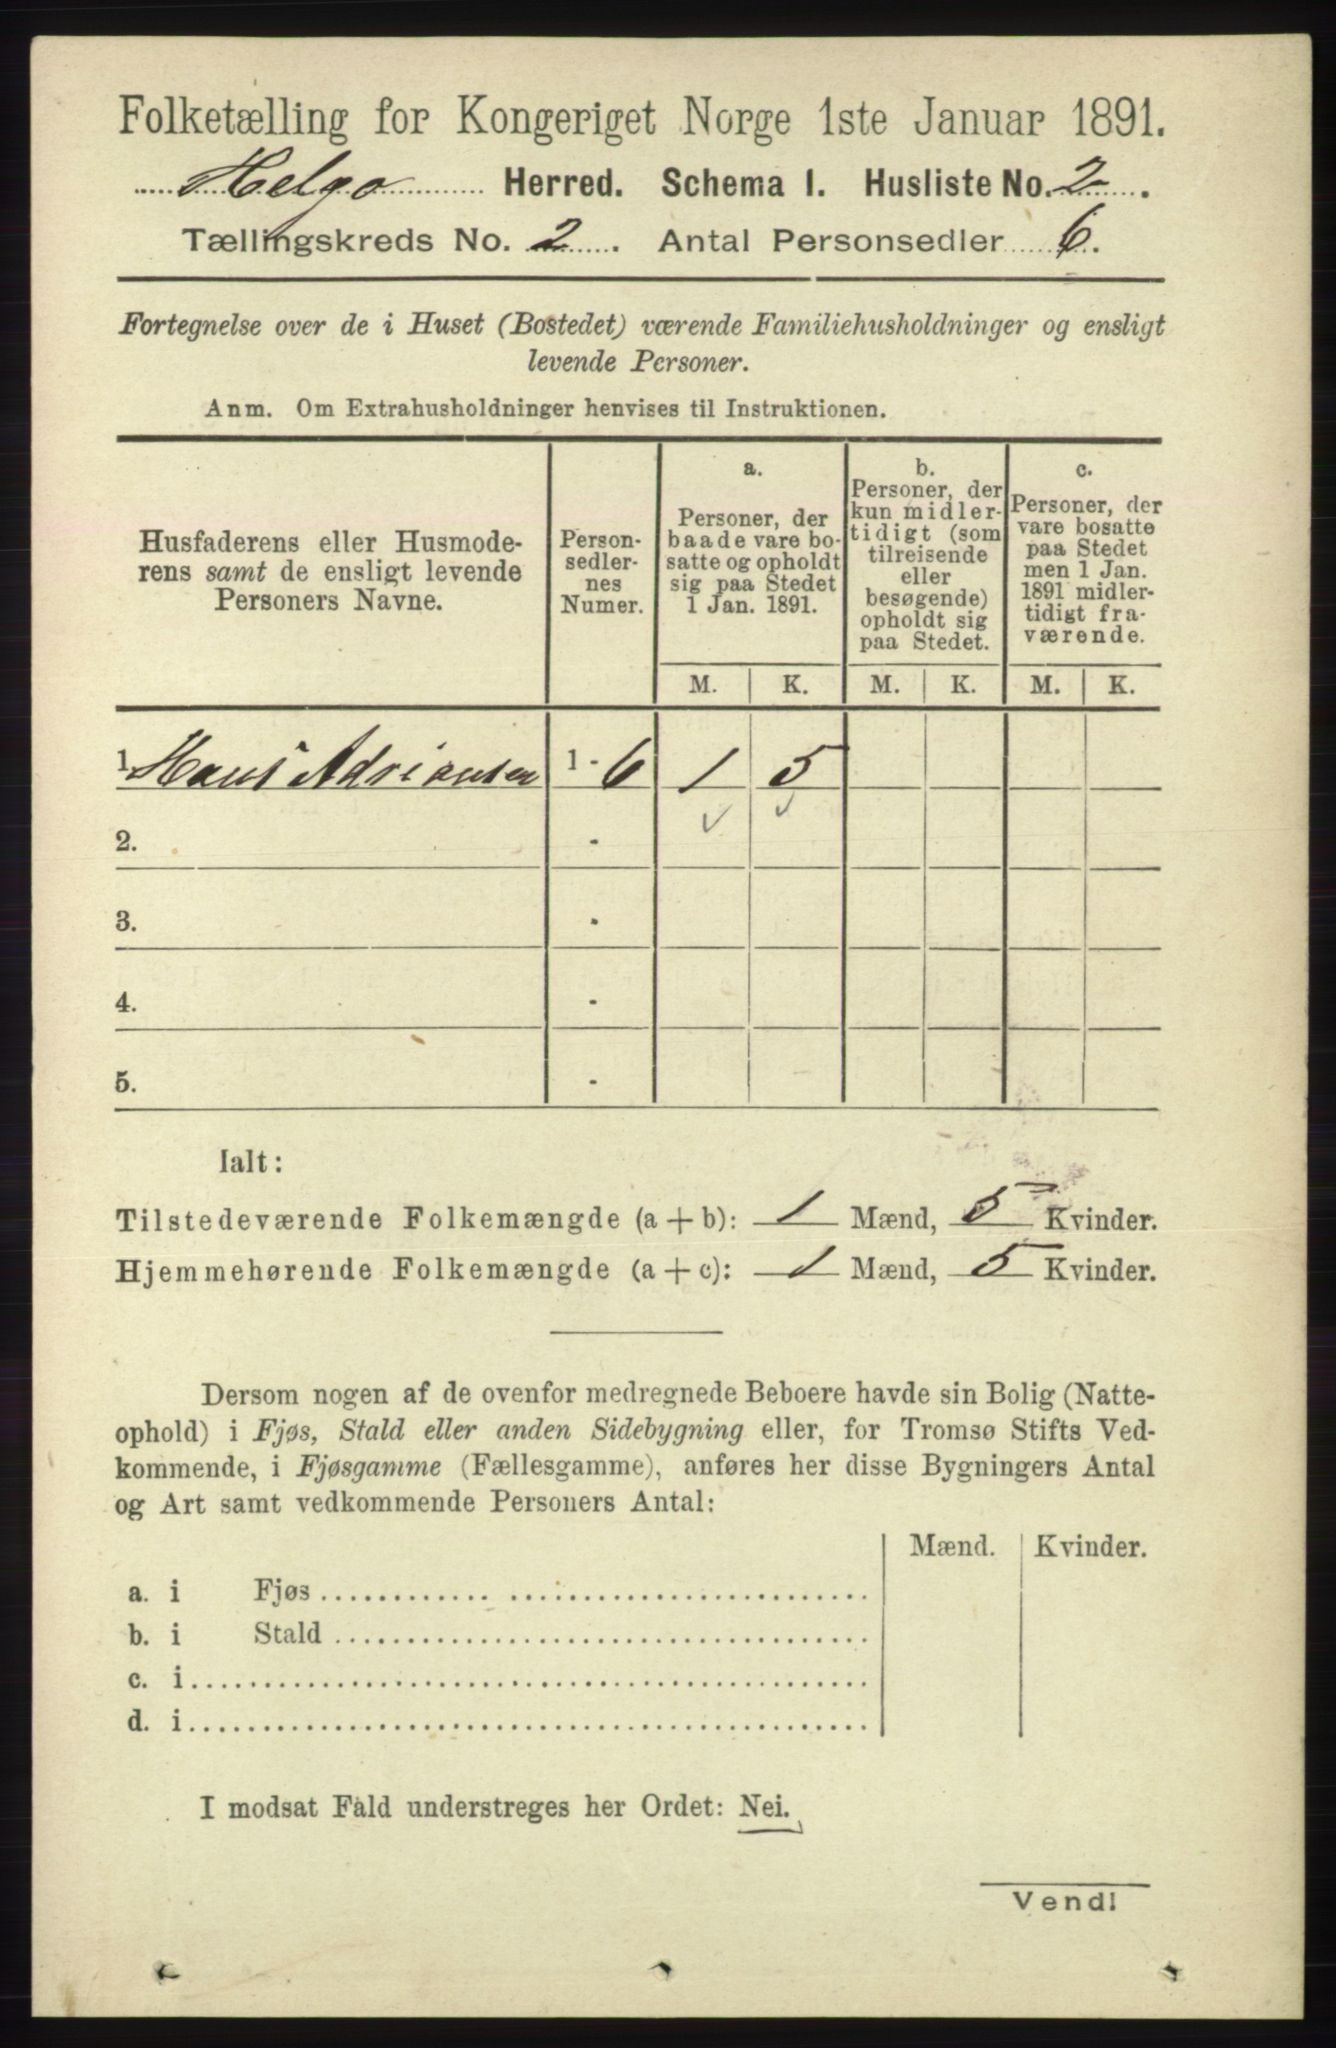 Folketælling for Kongeriget Norge 1ste Januar 1891.
Helgø Herred. Schema 1. Husliste No. 2.
Tællingskreds No. 2. Antal Personsedler 6.
Fortegnelse over de i Huset (Bostedet) værende Familiehusholdninger og ensligt
levende Personer.
Anm. Om Extrahusholdninger henvises til Instruktionen.
Husfaderens eller Husmode-
rens samt de ensligt levende
Personers Navne.
Person-
sedler-
nes
Numer.
a.
Personer, der
baade vare bo-
satte og opholdt
sig paa Stedet
1 Jan. 1891.
b.
Personer, der
kun midler-
tidigt (som
tilreisende
eller
besøgende)
opholdt sig
paa Stedet.
c.
Personer, der
vare bosatte
paa Stedet
men 1 Jan.
1891 midler-
tidigt fra-
værende.
M. K. M. K. M. K.
1. Hans Adriansen 1 - 6 1 5
2. -
3. -
4. -
5. -
Ialt:
Tilstedeværende Folkemængde (a + b): 1 Mænd, 5 Kvinder.
Hjemmehørende Folkemængde (a + c): 1 Mænd, 5 Kvinder.
Dersom nogen af de ovenfor medregnede Beboere havde sin Bolig (Natte-
ophold) i Fjøs, Stald eller anden Sidebygning eller, for Tromsø Stifts Ved-
kommende, i Fjøsgamme (Fællesgamme), anføres her disse Bygningers Antal
og Art samt vedkommende Personers Antal:
Mænd. Kvinder.
a. i Fjøs
b. i Stald
c. i
d. i
I modsat Fald understreges her Ordet: Nei.
Vend!